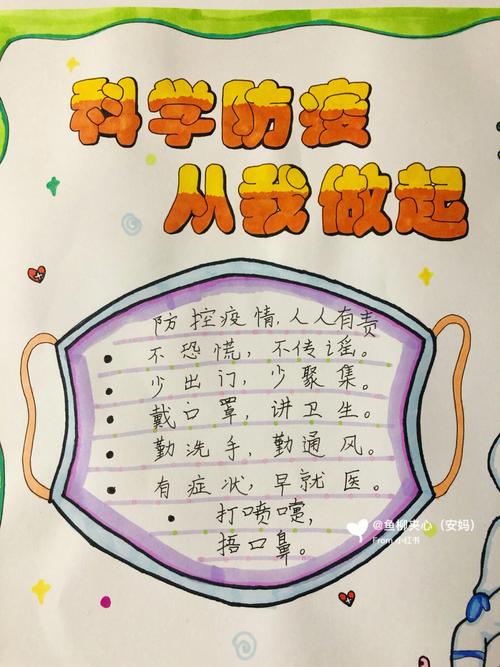 科学防疫
从我做起
防控疫情,人人有责
不恐慌，不传谣。
少出门，少聚集。
戴口罩，讲卫生。
勤洗手，勤通风。
有症状，早就医。
打喷嚏，
捂口鼻。
@鱼柳夹心（安妈）
From 小红书